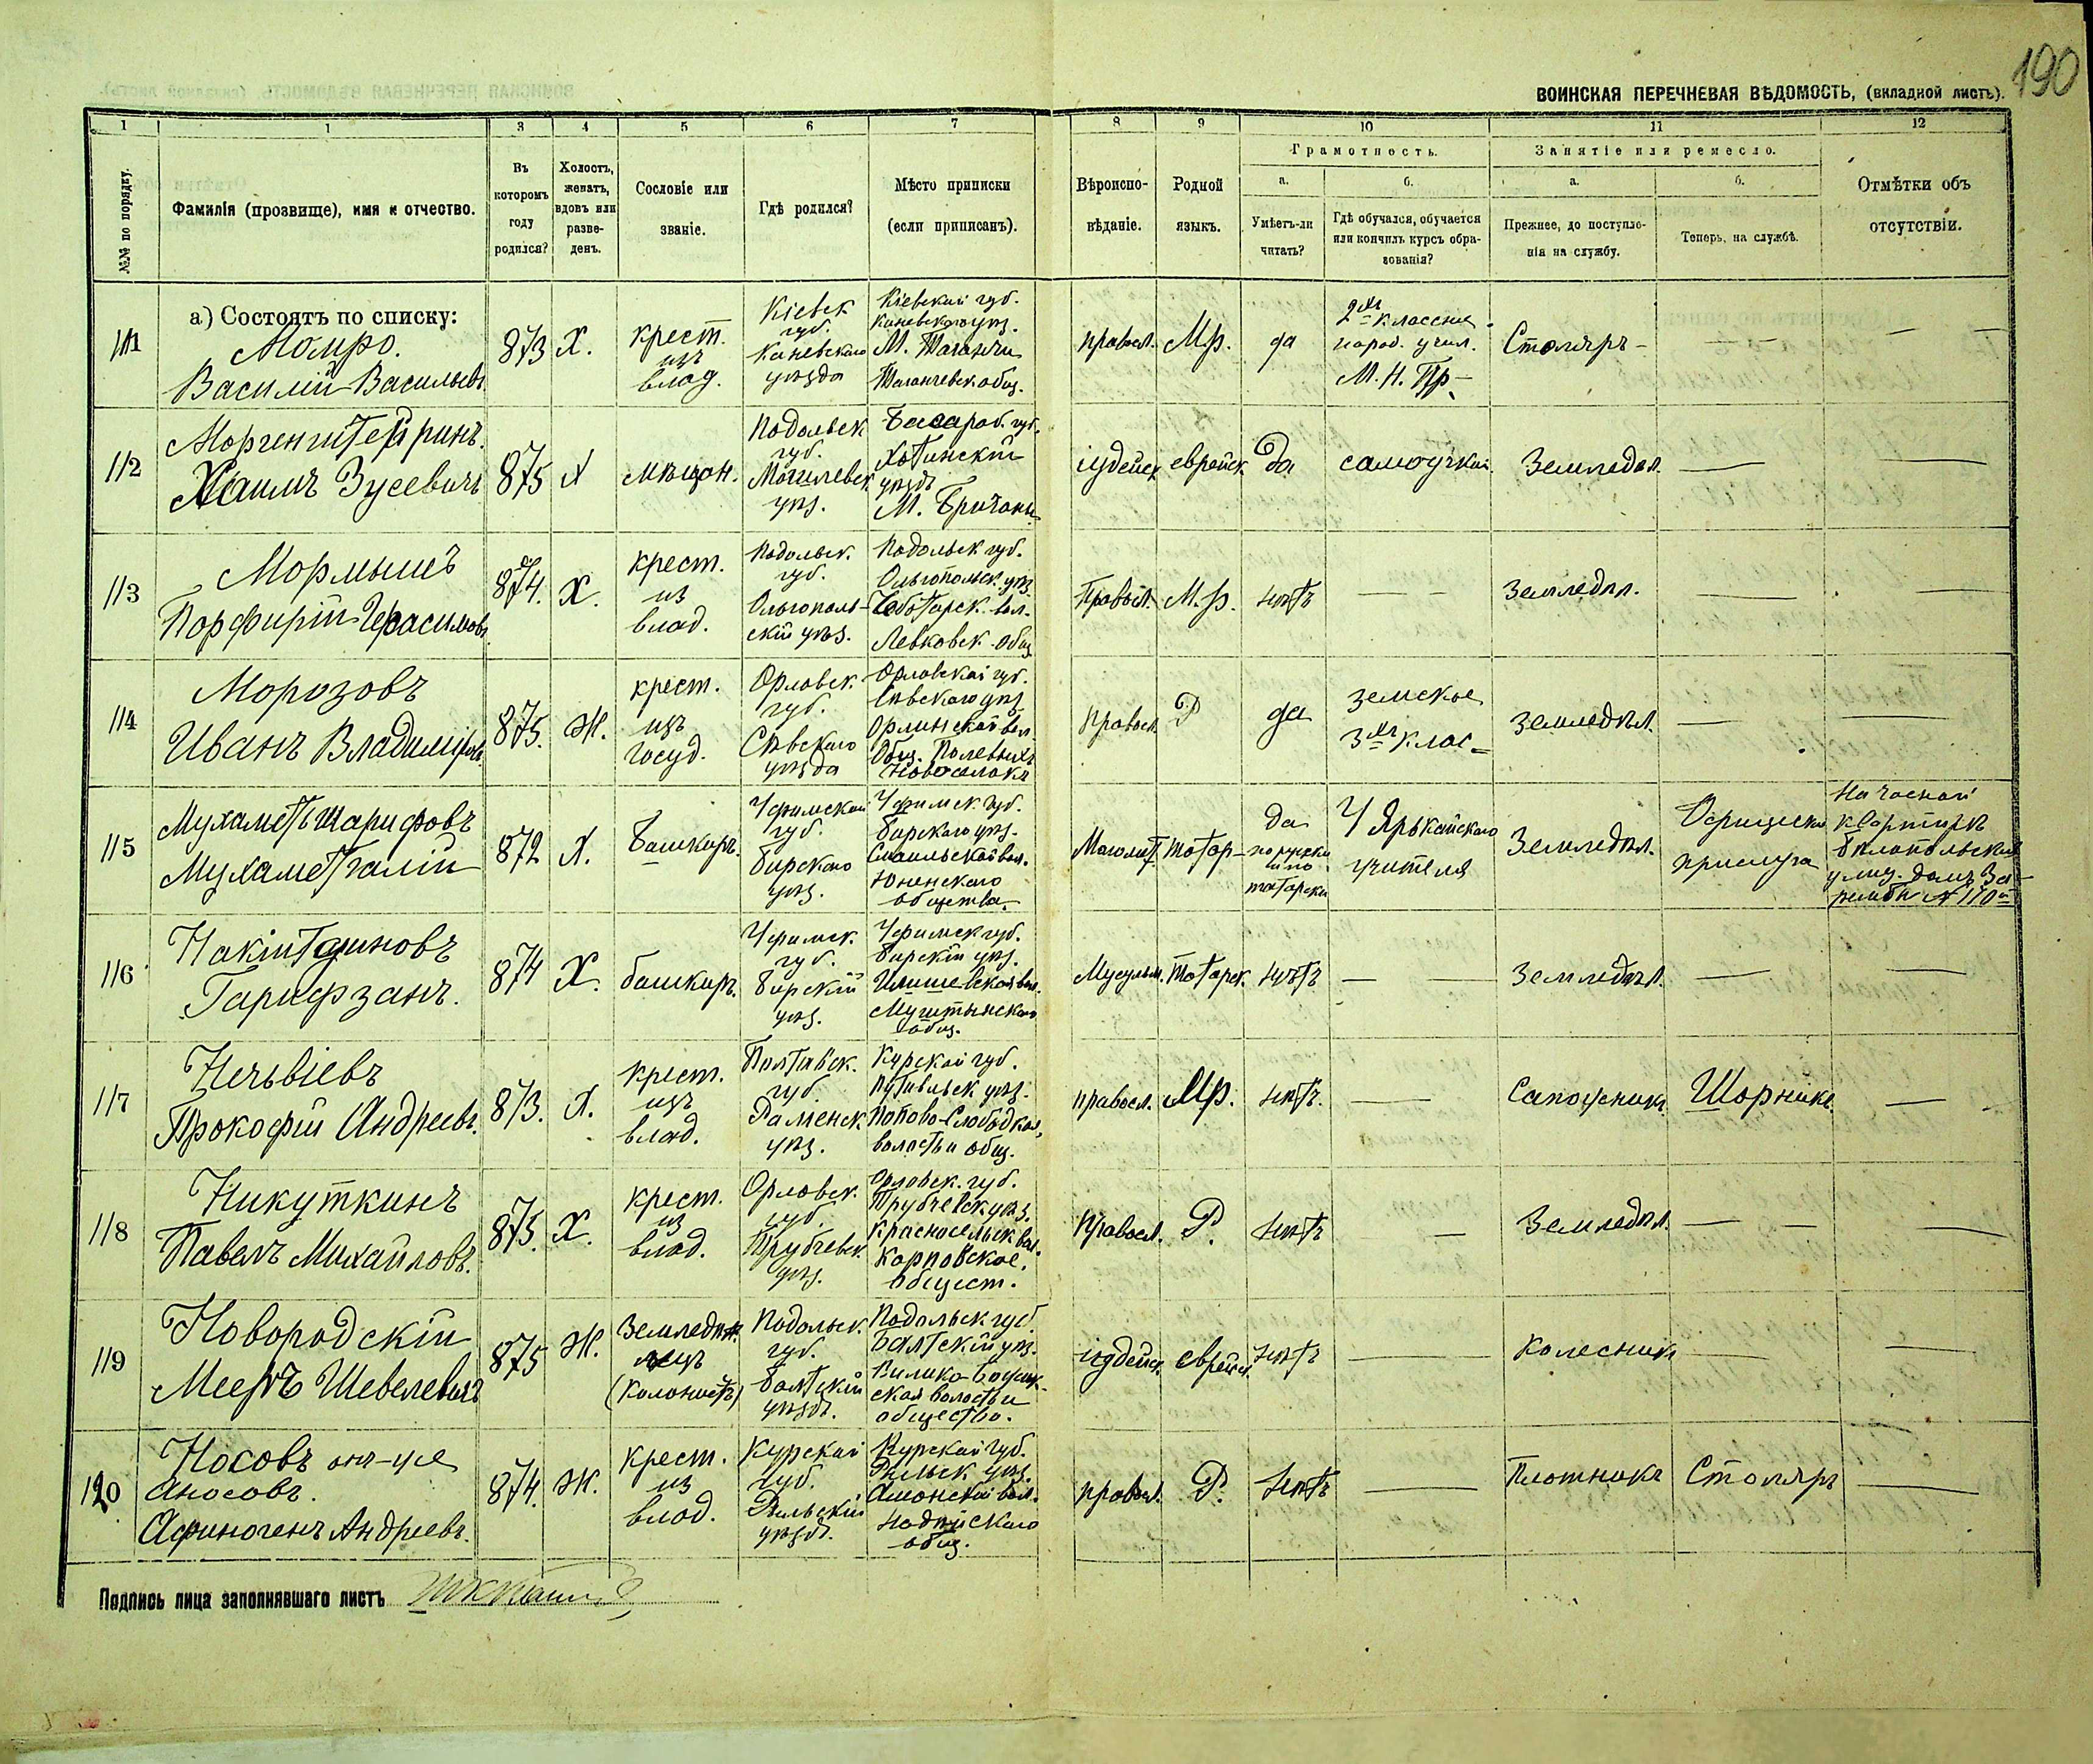 190
ВОИНСКАЯ ПЕРЕЧНЕВАЯ ВѢДОМОСТЬ, (вкладной листъ).
1 1 3 4 5 6 7 8 9 10 11 12
№№ по порядку.
Фамилія (прозвище), имя и отчество.
Въ которомъ году родился?
Холостъ, женатъ, вдовъ или разведенъ.
Сословіе или званіе.
Гдѣ родился?
Мѣсто приписки (если приписанъ).
Вѣроисповѣданіе.
Родной языкъ.
Грамотность.
а. Умѣетъ-ли читать?
б. Гдѣ обучался, обучается или кончилъ курсъ образованія?
Занятіе или ремесло.
а. Прежнее, до поступленія на службу.
б. Теперь, на службѣ.
Отмѣтки объ отсутствіи.
а) Состоятъ по списку:
111
Момро.
Василій Васильевъ
873
Х.
крест.
изъ
влад.
Кіевск
губ.
Каневскаго
уѣзда
Кіевской губ.
Каневскаго уѣз.
М. Таганчи
Таганчевск. общ.
правосл.
Мр.
да
2хъ классное
народ. учил.
М. Н. Пр–
Столяръ –
112
Хаимъ Зусевичъ
875
Х
мѣщан.
Подольск
губ.
Могилевск
уѣз.
Бессараб. губ.
Хотинскій
уѣздъ
М. Бричаны
іудейск
еврейск
да
самоучкой.
Земледѣл.
113
Мормышъ
Порфирій Герасимовъ
874.
Х.
крест.
из
влад.
Подольск.
губ.
Ольгополь-
скій уѣз.
Подольск губ.
Ольгопольск. уѣз.
Чеботарск. вол.
Левковск. общ
Правосл.
М. р.
нѣтъ
Земледѣл.
114
Морозовъ
Иванъ Владиміровъ.
875.
Ж.
крест.
изъ
госуд.
Орловск.
губ.
Сѣвскаго
уѣзда
Орловской губ.
Сѣвскаго уѣз
Орлинской вол.
Общ. Полевыхъ
Новоселокъ
Правосл.
Р
да
земское
3хъ клас=
Земледѣл.
115
Мухаметъ шарифовъ
Мухаметгалій
872
Х.
Башкиръ.
Уфимской
губ.
Бирскаго
уѣз.
Уфимск. губ.
Бирскаго уѣз.
общества.
Магомет.
татар–
да
по русски
и по
татарски
У Яркайскаго
учителя
Земледѣл.
Офицерская
прислуга
На частной
квартирѣ
улиц. домъ За-
116
Гарифзанъ.
874
Х.
башкиръ.
Уфимск.
губ.
Бирскій
уѣз.
Уфимск губ.
Бирскій уѣз.
Илишевской вол.
общ.
Мусульм.
Татарск.
нѣтъ
Земледѣл.
117
Нечьвіевъ
Прокофій Андреевъ.
873.
Х.
крест.
изъ
влад.
Полтавск.
губ.
Раменск
уѣз.
Курской губ.
Путивльск уѣз.
Попово-Слободская,
волость и общ.
правосл.
Мр.
нѣтъ.
Сапожникъ
Шорникъ
118
Никуткинъ
Павелъ Михайловъ.
875.
Х.
крест.
из
влад.
Орловск.
губ.
Трубчевск.
уѣз.
Орловск. губ.
Трубчевск уѣз.
Красносельск вол.
Карповское.
общест.
Правосл.
Р.
нѣтъ
Земледѣл.
119
Новородскій
Мееръ Шевелевичъ
875
Ж.
Земледѣ-
лецъ
(Колонистъ)
Подольск.
губ.
Балтскій
уѣздъ.
Подольск губ
Балтскій уѣз.
ской волости
общество.
іудейск.
еврейск.
нѣтъ
Колесникъ
120
Носовъ онъ-же
Аносовъ.
Афиногенъ Андреевъ.
874.
Ж.
крест.
из
влад.
Курской
губ.
Рыльскій
уѣздъ.
Курской губ.
Рыльск уѣз.
Амонской вол.
общ.
правосл.
Р.
нѣтъ
Плотникъ
Столяръ
Подпись лица заполнявшаго листъ